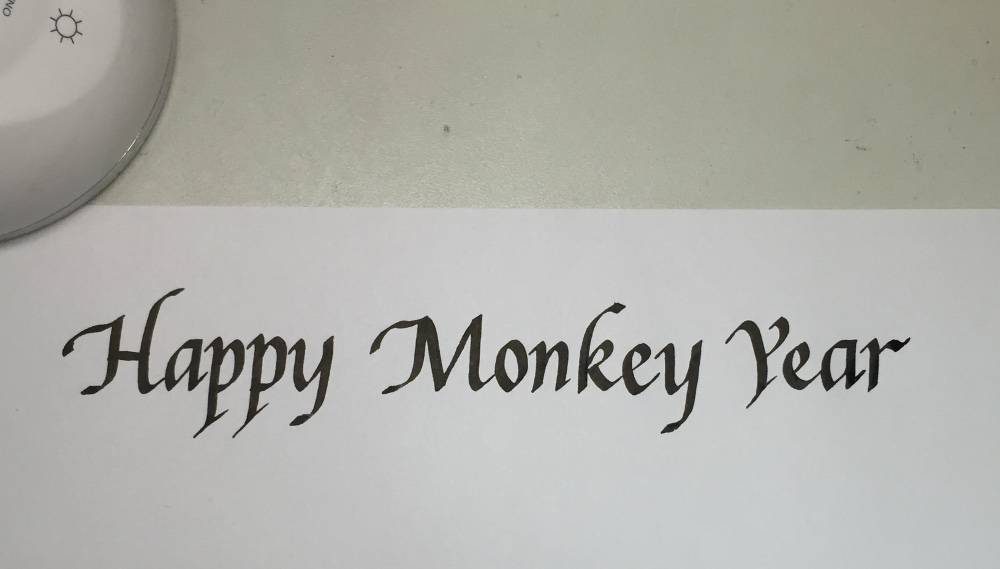 Happy Monkey Year